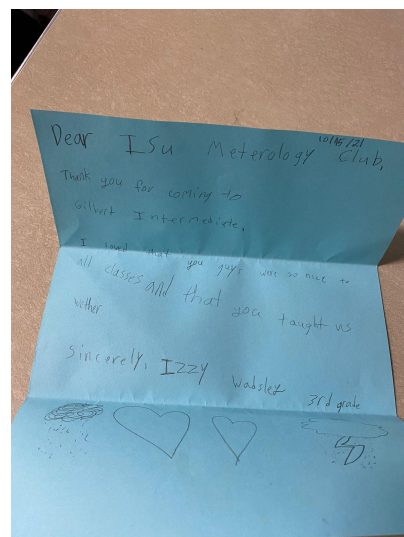 10/15/21
Dear ISU Meterology Club,
Thank you for coming to
Gilbert Intermediate.
I loved that you guys were so nice to
all classes and that you taught us
wether
Sincerely, Izzy Wabsley 3rd grade